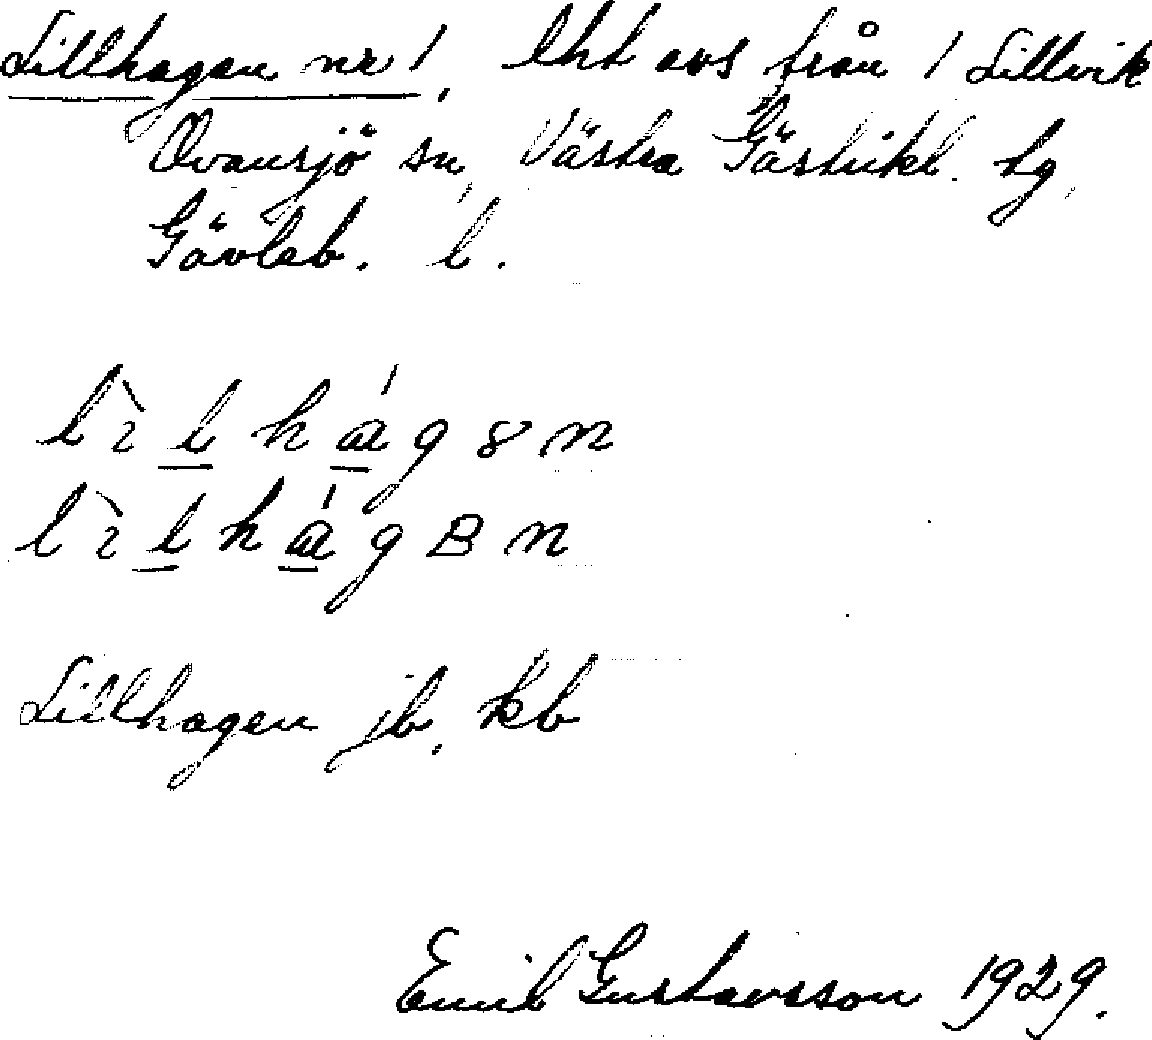 Lillhagen nr 1, lht avs från 1 Lillvik
Ovansjö sn, Västra Gästrikl. tg,
Gävleb. l.
lìlhágən
lìlhágBn
Lillhagen jb, kb
Emil Gustavsson 1929.